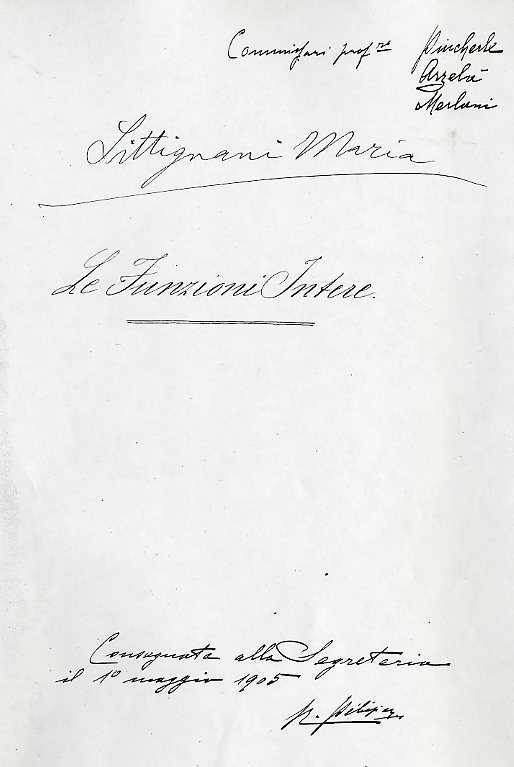 Commissari prof.ri Pincherle
Arzelà
Merlani
Sittignani Maria
Le Funzioni Intere.
Consegnata alla Segreteria
il 1º maggio 1905